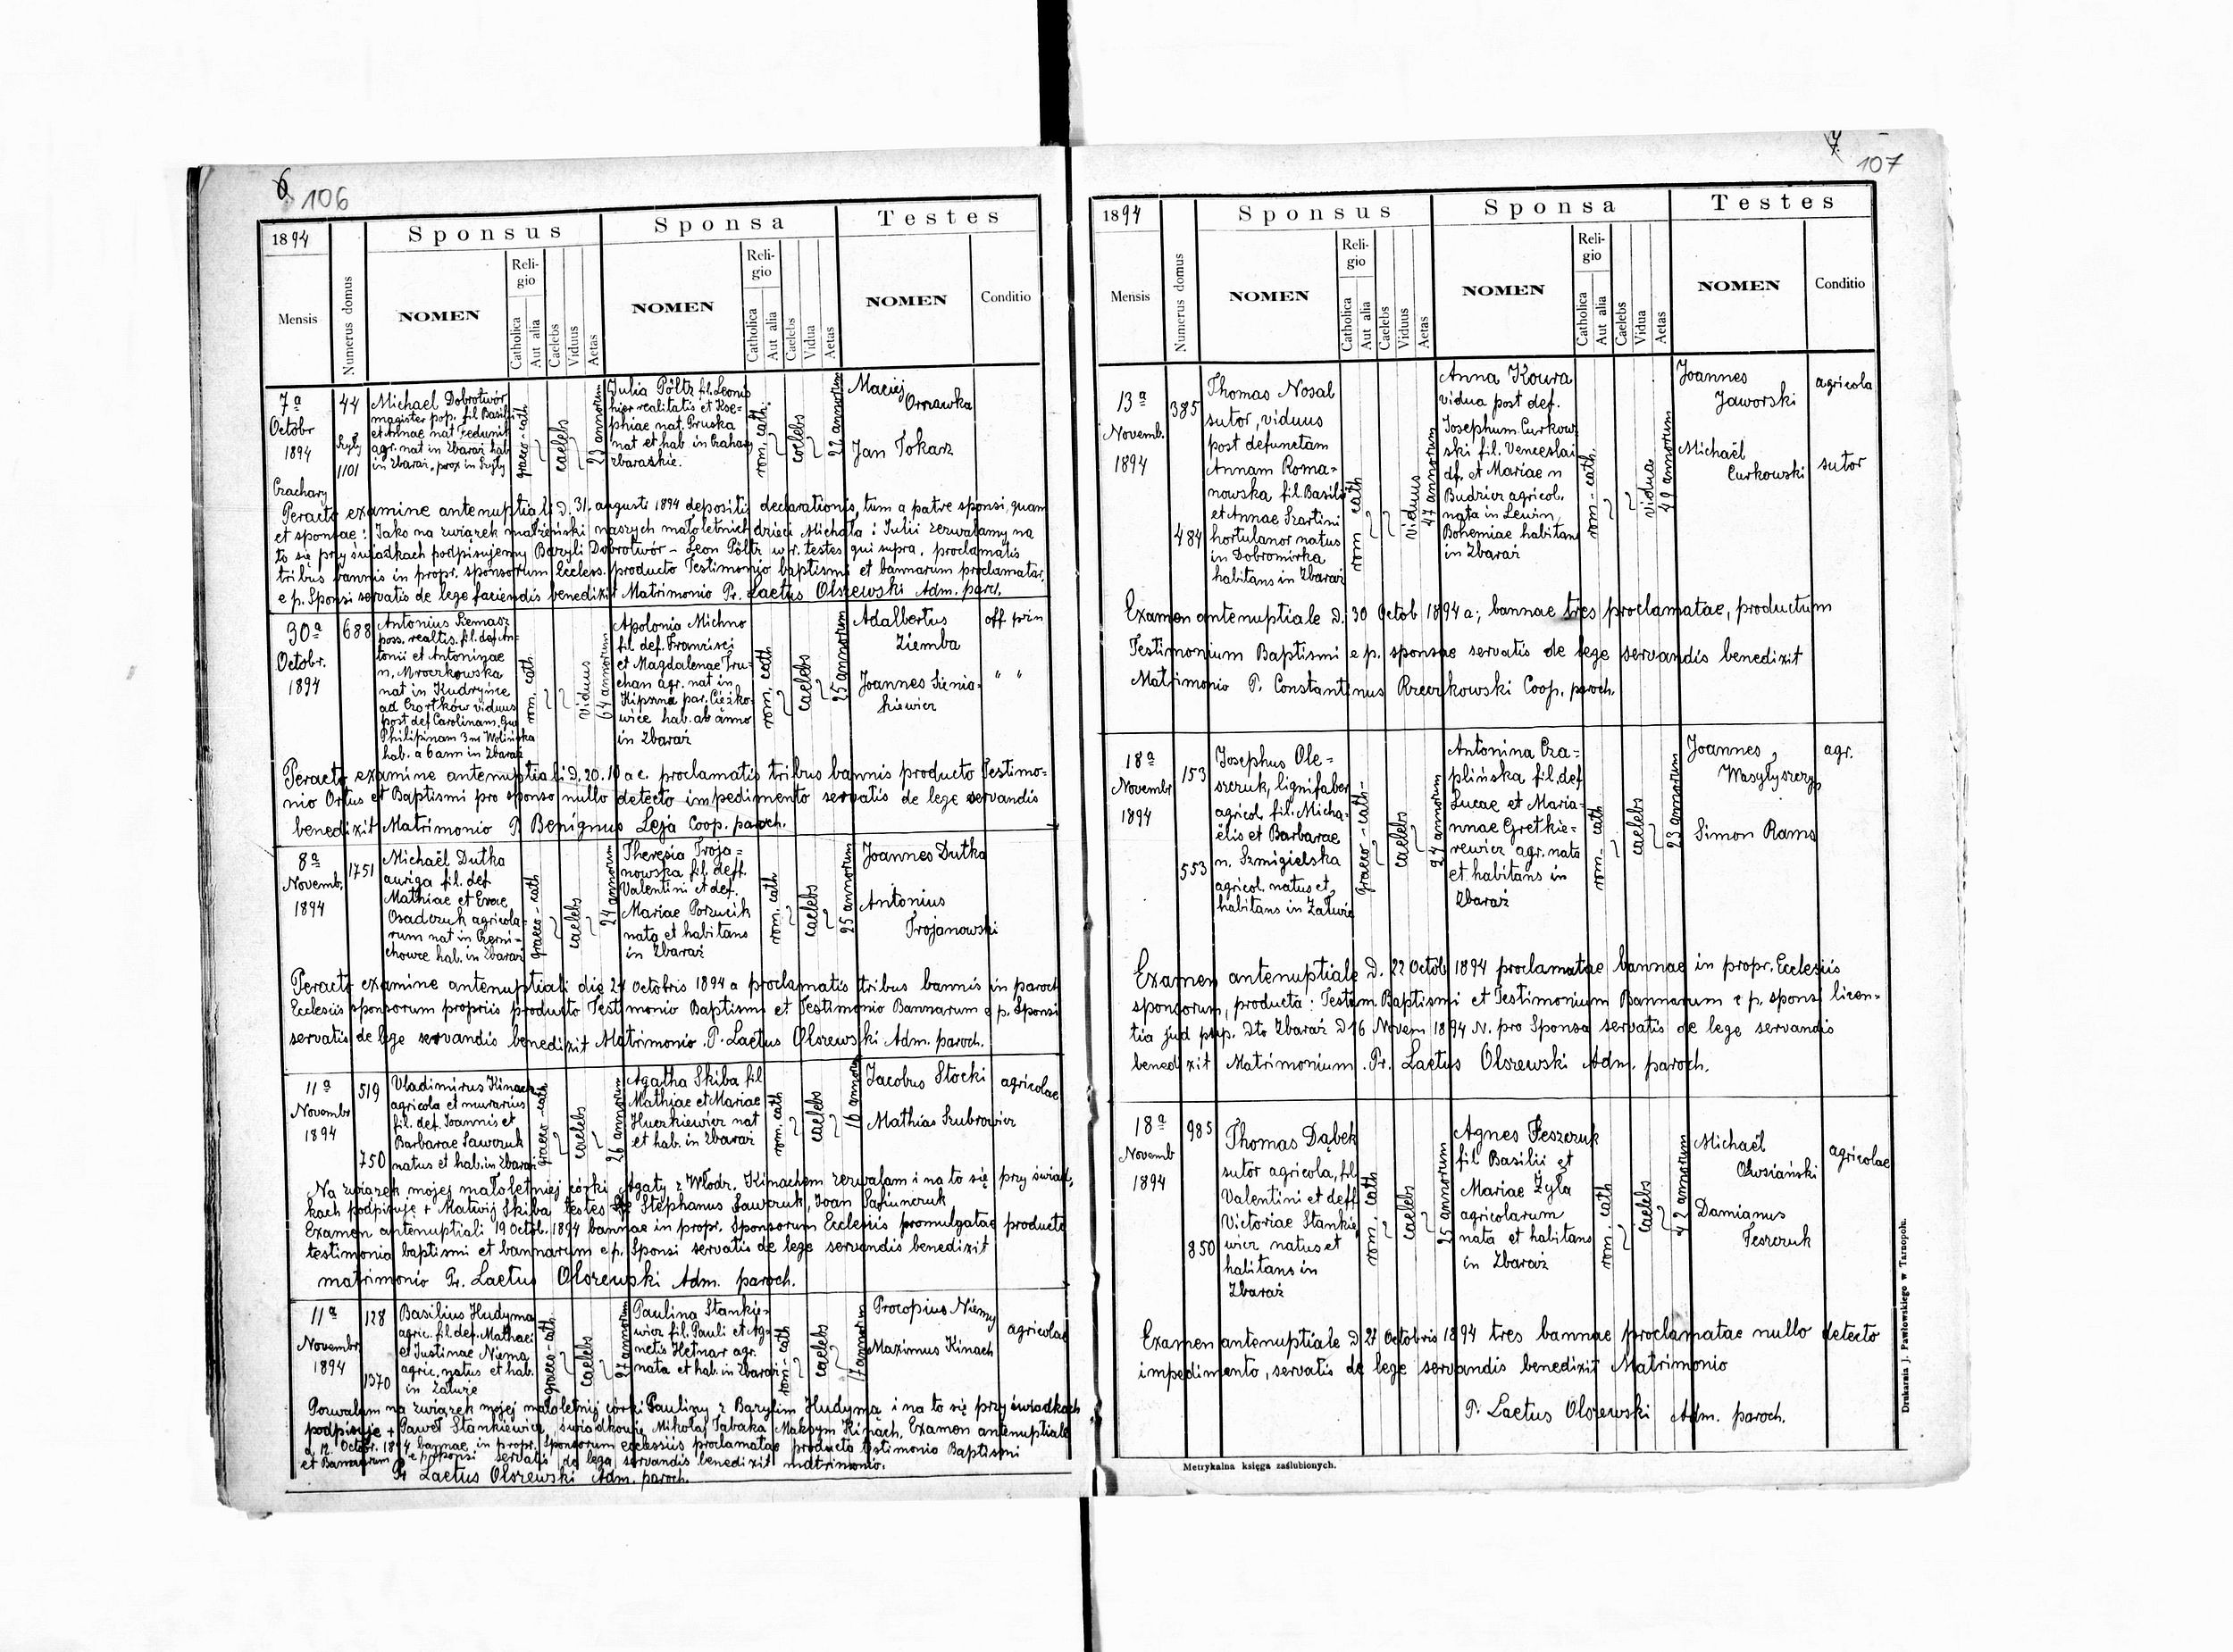 6 106
1894
Sponsus
Sponsa
Testes
Mensis
Numerus domus
NOMEN
Religio
Catholica
Aut alia
Caelebs
Viduus
Aetas
NOMEN
Religio
Catholica
Aut alia
Caelebs
Vidua
Aetas
NOMEN
Conditio
7a
Octobr
1894
44
1101
Michael Dobrotwór
magister pop. fil Basilii
et Annae nat Fedunik
agr. nat in Zbaraż hab
in Zbaraż, prox in
graeco-cath
caelebs
23 annorum
Julia Pöltz fil. Leonis
hier realitatis et Jose-
phiae nat. Gruska
nat et hab in Czahary
zbaraskie.
rom. cath.
coelebs
22 annorum
Maciej
Ornawka
Jan Tokarz
Czachary
Peracto examine antenuptiali d. 31. augusti 1894 depositis declarationis, tum a patre sponsi, quam
et sponsae: Jako na związek małżeński naszych małoletnich dzieci Michała i Julii zezwalamy na
to się przy świadkach podpisujemy Bazyli Dobrotwór – Leon Pöltz w.r. testes qui supra, proclamatis
tribus bannis in propr. sponsorum Eccless. producto Testimonio baptismi et bannarum proclamatar.
e p. Sponsi servatis de lege faciendis benedixit Matrimonio Pr. Laetus Olszewski Adm. paroch.
30a
Octobr.
1894
688
Antonius Ziemasz
poss. realtis. fil. def An-
tonii et Antoninae
n. Mroczkowska
nat in Kudryńce
ad Czortków viduus
post def Carolinam. Gu
Philipinam 3 nt Wolińska
hab. a 6 ann in Zbaraż
rom. cath.
viduus
64 annorum
Apolonia Michno
fil def. Francisci
et Magdalenae Tru-
chan agr. nat in
Kipszna par. Ciężko-
wice hab. ab anno
in Zbaraż
rom. cath
caelebs
25 annorum
Adalbertus
Ziemba
Joannes Sienia-
kiewicz
off prin
" "
Peracto examine antenuptiali d. 20. 10 a c. proclamatis tribus bannis producto Testimo-
nio Ortus et Baptismi pro sponso nullo detecto impedimento servatis de lege servandis
benedixit Matrimonio P. Benignus Leja Coop. paroch.
8a
Novemb.
1894
1751
Michaël Dutka
auriga fil. def
Mathiae et Evae
Osadczuk agricola-
rum nat in Czerni-
chowce hab. in Zbaraż
graeco-cath
caelebs
24 annorum
Theresia Troja-
nowska fil. deff.
Valentini et def.
Mariae Porzucik
nata et habitans
in Zbaraż
rom. cath
caelebs
25 annorum
Joannes Dutka
Antonius
Trojanowski
Peracto examine antenuptiali die 27 Octobris 1894 a proclamatis tribus bannis in paroch
Ecclesiis sponsorum propriis producto Testimonio Baptismi et Testimonio Bannarum e p. Sponsi
servatis de lege servandis benedixit Matrimonio. P. Laetus Olszewski Adm. paroch.
11a
Novembr
1894
519
750
Vladimirus Kinach
agricola et murarius
fil. def. Joannis et
Barbarae Sawczuk
natus et hab. in Zbaraż
graeco-cath
caelebs
26 annorum
Agatha Skiba fil
Mathiae et Mariae
Huczkiewicz nat
et hab. in Zbaraż
rom. cath
caelebs
16 annorum
Jacobus Stocki
Mathias Szubrowicz
agricolae
Na związek mojej małoletniej córki Agaty z Włodz. Kinachem zezwalam i na to się przy świad-
kach podpisuję + Matwij Skiba testes Stephanus Sawczuk, Joan
Examen antenuptiali 19 Octob. 1894 bannae in propr. Sponsorum Ecclesiis promulgatae producto
testimonia baptismi et bannarum e p. Sponsi servatis de lege servandis benedixit
matrimonio Pr. Laetus Olszewski Adm. paroch.
11a
Novembr
1894
128
1370
Basilius Hudyma
agric. fil. def. Mathaei
et Justinae Niema
agric. natus et hab.
in Załuże
graeco-cath.
caelebs
27 annorum
Paulina Stankie-
wicz fil. Pauli et Ag-
netis Hetnar agr.
nata et hab. in Zbaraż
rom-cath
caelebs
17 annorum
Procopius Niemy
Maximus Kinach
agricolae
Pozwalam na związek mojej małoletniej córki Pauliny z Bazylim Hudymą i na to się przy świadkach
podpisuję + Paweł Stankiewicz, świadkowie Mikołaj Tabaka Maksym Kinach. Examen antenuptiale
d. 12. Octobr. 1894 bannae in propr. Sponsorum ecclessiis proclamatae producto testimonio Baptismi
et Bannarum e p. Sponsi servatis de lege servandis benedixit matrimonio.
Pr Laetus Olszewski Adm. paroch.
7
107
1894
Sponsus
Sponsa
Testes
Mensis
Numerus domus
NOMEN
Religio
Catholica
Aut alia
Caelebs
Viduus
Aetas
NOMEN
Religio
Catholica
Aut alia
Caelebs
Vidua
Aetas
NOMEN
Conditio
13a
Novemb.
1894
385
484
Thomas Nosal
sutor, viduus
post defunctam
Annam Roma-
nowska fil. Basilii
et Annae Szartini
hortulanor natus
in Dobromirka
habitans in Zbaraż
rom cath
viduus
47 annorum
Anna Koura
vidua post def.
Josephum Curkow
ski fil. Venceslai
df. et Mariae n
Budzicz agricol.
nata in Lewin,
Bohemiae habitans
in Zbaraż
rom-cath.
vidua
49 annorum
Joannes
Jaworski
Michaël
Curkowski
agricola
sutor
Examen antenuptiale d. 30 Octob 1894 a; bannae tres proclamatae, productum
Testimonium Baptismi e p. sponsae servatis de lege servandis benedixit
Matrimonio P. Constantinus Rzeczkowski Coop. paroch.
18a
Novembr
1894
153
553
Josephus Ole-
szczuk, lignifaber
agricol. fil. Micha-
ëlis et Barbarae
n. Szmigielska
agricol. natus et
habitans in Załuże
graeco-cath-
caelebs
24 annorum
Antonina Cza-
plińska fil. def
Lucae et Maria-
nnae Gretkie-
rewicz agr. nata
et habitans in
Zbaraż
rom-cath
caelebs
23 annorum
Joannes
Wasylyszczyn
Simon Rams
agr.
Examen antenuptiale d. 22 Octob 1894 proclamatae bannae in propr. Ecclesiis
sponsorum, producta: Testem. Baptismi et Testimonium Bannarum e p. sponsi licen-
tia jud pup. dto Zbaraż d 16 Novem 1894 N. pro Sponsa servatis de lege servandis
benedixit Matrimonium. Pr. Laetus Olszewski Adm. paroch.
18a
Novemb
1894
985
850
Thomas Dąbek
sutor agricola, fil
Valentini et deff
Victoriae Stankie
wicz natus et
habitans in
Zbaraż
rom. cath
caelebs
25 annorum
Agnes Feszczuk
fil Basilii et
Mariae Żyła
agricolarum
nata et habitans
in Zbaraż
rom. cath
caelebs
42 annorum
Michaël
Owsiański
Damianus
Feszczuk
agricolae
Examen antenuptiale d 27 Octobris 1894 tres bannae proclamatae nullo detecto
impedimento, servatis de lege servandis benedixit Matrimonio
P. Laetus Olszewski Adm. paroch.
Metrykalna księga zaślubionych.
Drukarnia J. Pawłowskiego w Tarnopolu.